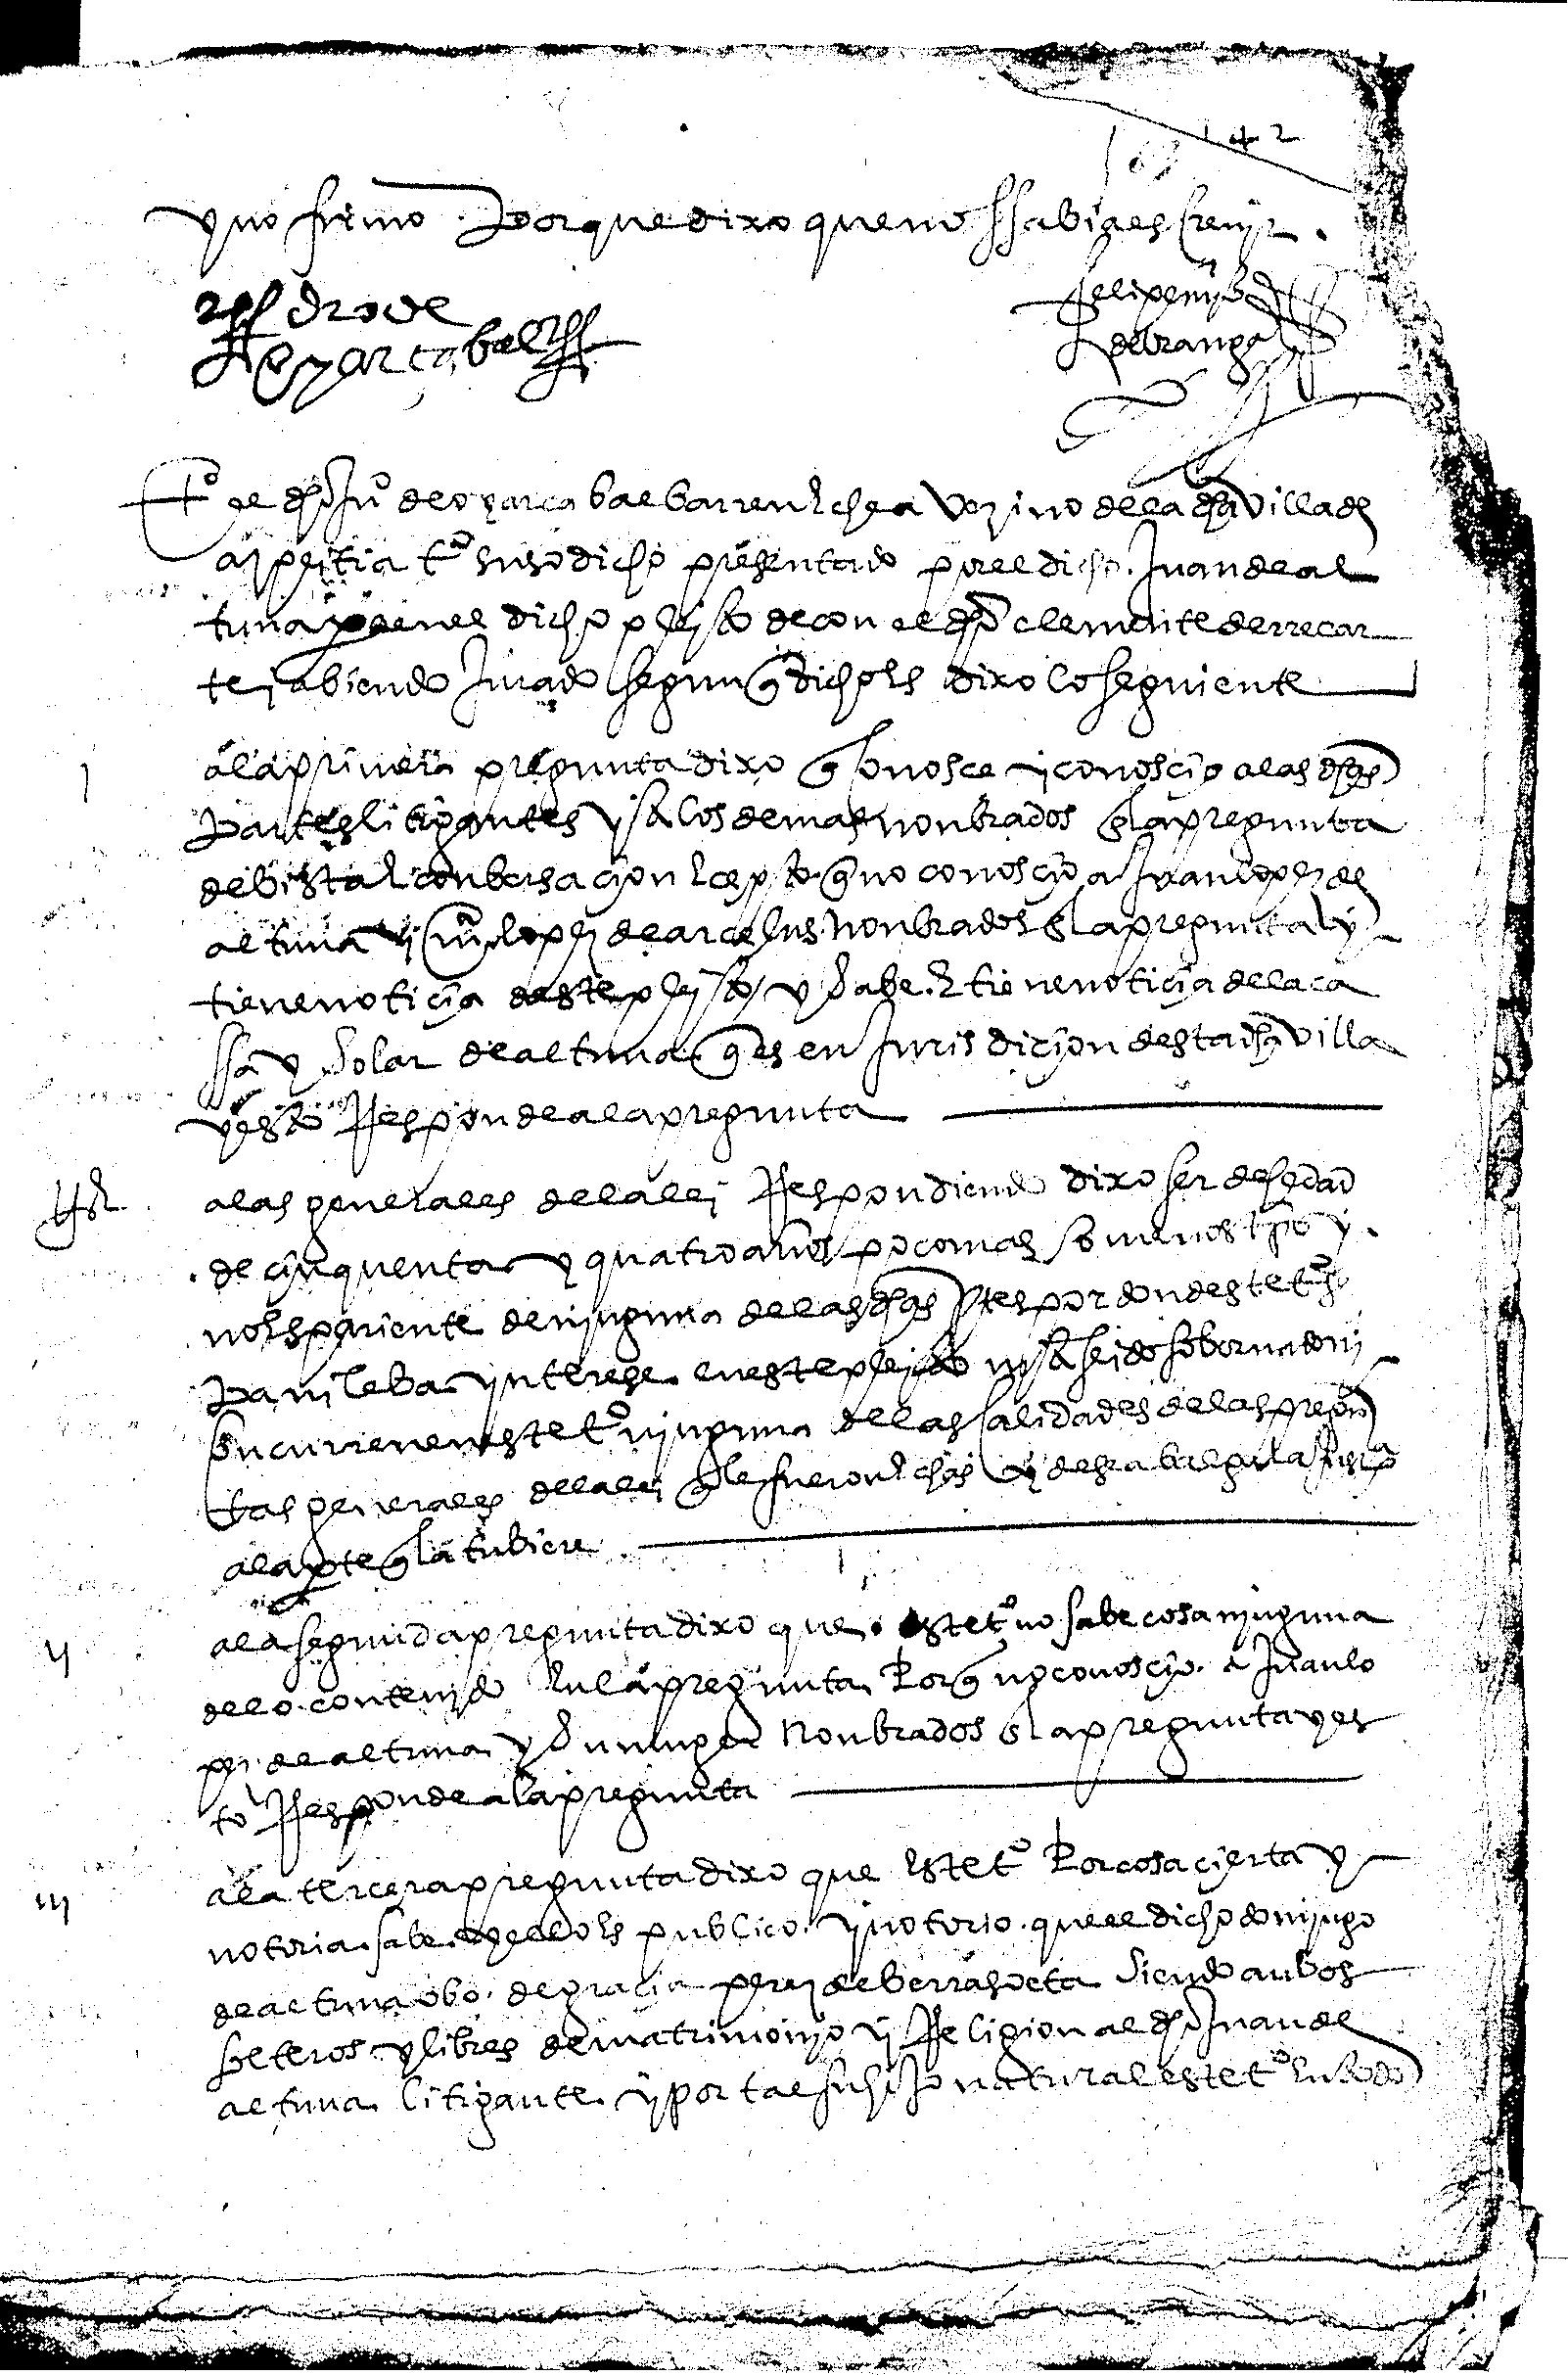 142
y no firmo porque dixo que no ssabia escreuir.
Pedro de
oyarçabal
Felipe nyb
de vranga
Tº el dho Juº de oyarçabal barrenechea vezino de la dha villa de
azpeitia tº susodicho presentado por el dicho Juan de al
tuna en el dicho pleito de con el dho clemente de recar
te i abiendo Jurado segun q dicho es dixo lo seguiente
a la primera pregunta dixo q conosce y conoscio a las dhas
partes litigantes y a los demas nonbrados en la pregunta
de bista e conbersaçion ecepto q no conosçio a Juan lopez de
altuna y mª lopez de arcelus nonbrados en la pregunta y
tiene notiçia deste pleito y sabe e tiene notiçia de la ca
ssa y solar de altuna q es en Jurisdiçion desta dha villa
y esto Responde a la pregunta
a las generales de la lei Respondiendo dixo ser de hedad
de çinquenta y quatro años poco mas o menos tpo y
no es pariente de ninguna de las dhas ptes por donde este tº
pa ni leba ynterese en este pleito ni a seido sobornado ni
concurren en este tº ninguna de las calidades de las pregun
tas generales de la lei q le fueron hechas y desea balga la Justiª
a la pte q la tubiere
ij
a la segunda pregunta dixo que este tº no sabe cosa ninguna
de lo contenido en la pregunta porq no conosçio a Juan lo
pez de altuna y su muger nonbrados en la pregunta y es
to Responde a la pregunta
iij
a la terçera pregunta dixo que este tº por cosa çierta y
notoria sabe e dello es publico y notorio que el dicho domingo
de altuna obo de graçia perez de berrasoeta siendo anbos
solteros y libres de matrimonio y Religion al dho Juan de
altuna litigante y por tal su hijo natural este tº en todo